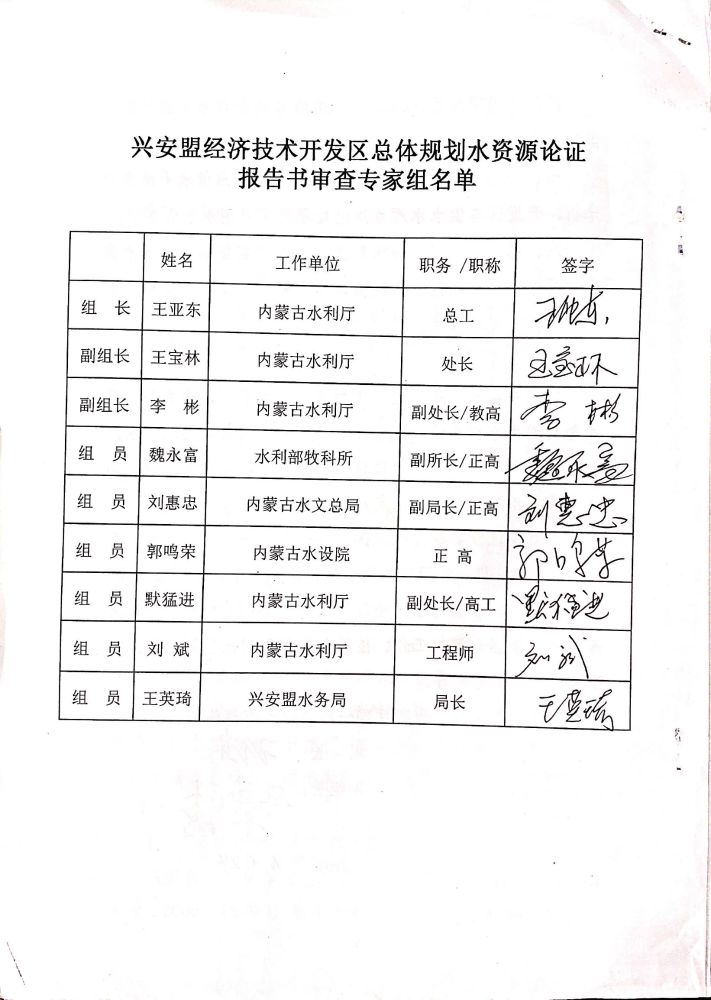 兴安盟经济技术开发区总体规划水资源论证
报告书审查专家组名单
姓名 工作单位 职务 /职称 签字
组 长 王亚东 内蒙古水利厅 总工 王亚东
副组长 王宝林 内蒙古水利厅 处长 王宝林
副组长 李 彬 内蒙古水利厅 副处长/教高 李彬
组 员 魏永富 水利部牧科所 副所长/正高 魏永富
组 员 刘惠忠 内蒙古水文总局 副局长/正高 刘惠忠
组 员 郭鸣荣 内蒙古水设院 正 高 郭鸣荣
组 员 默猛进 内蒙古水利厅 副处长/高工 默猛进
组 员 刘 斌 内蒙古水利厅 工程师 刘斌
组 员 王英琦 兴安盟水务局 局长 王英琦